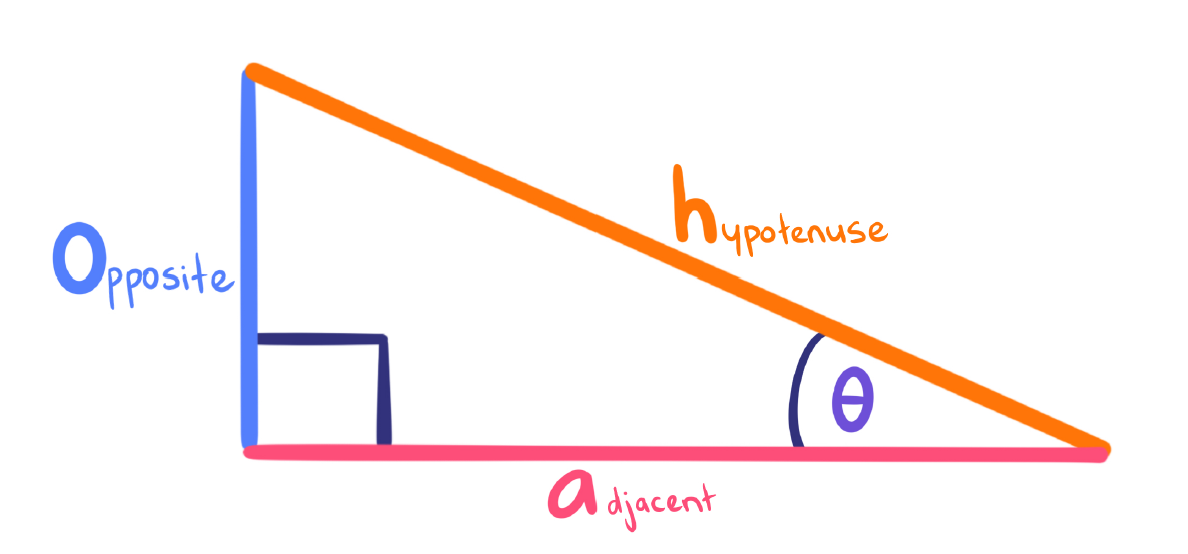 hypotenuse
Opposite
θ
adjacent